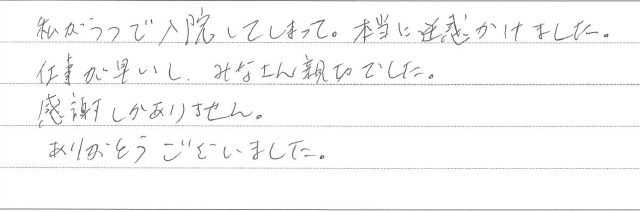 私がうつで入院してしまって。本当に迷惑かけました。
仕事が早いし、みなさん親切でした。
感謝しかありません。
ありがとうございました。